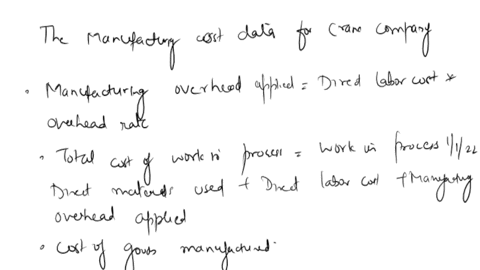 The Manufacturing cost data for Crane Company
• Manufacturing overhead applied = Direct labor cost *
overhead rate
• Total cost of work in process = work in process 1/1/22
Direct materials used + Direct labor cost + Manufacturing
overhead applied
• Cost of goods manufactured: